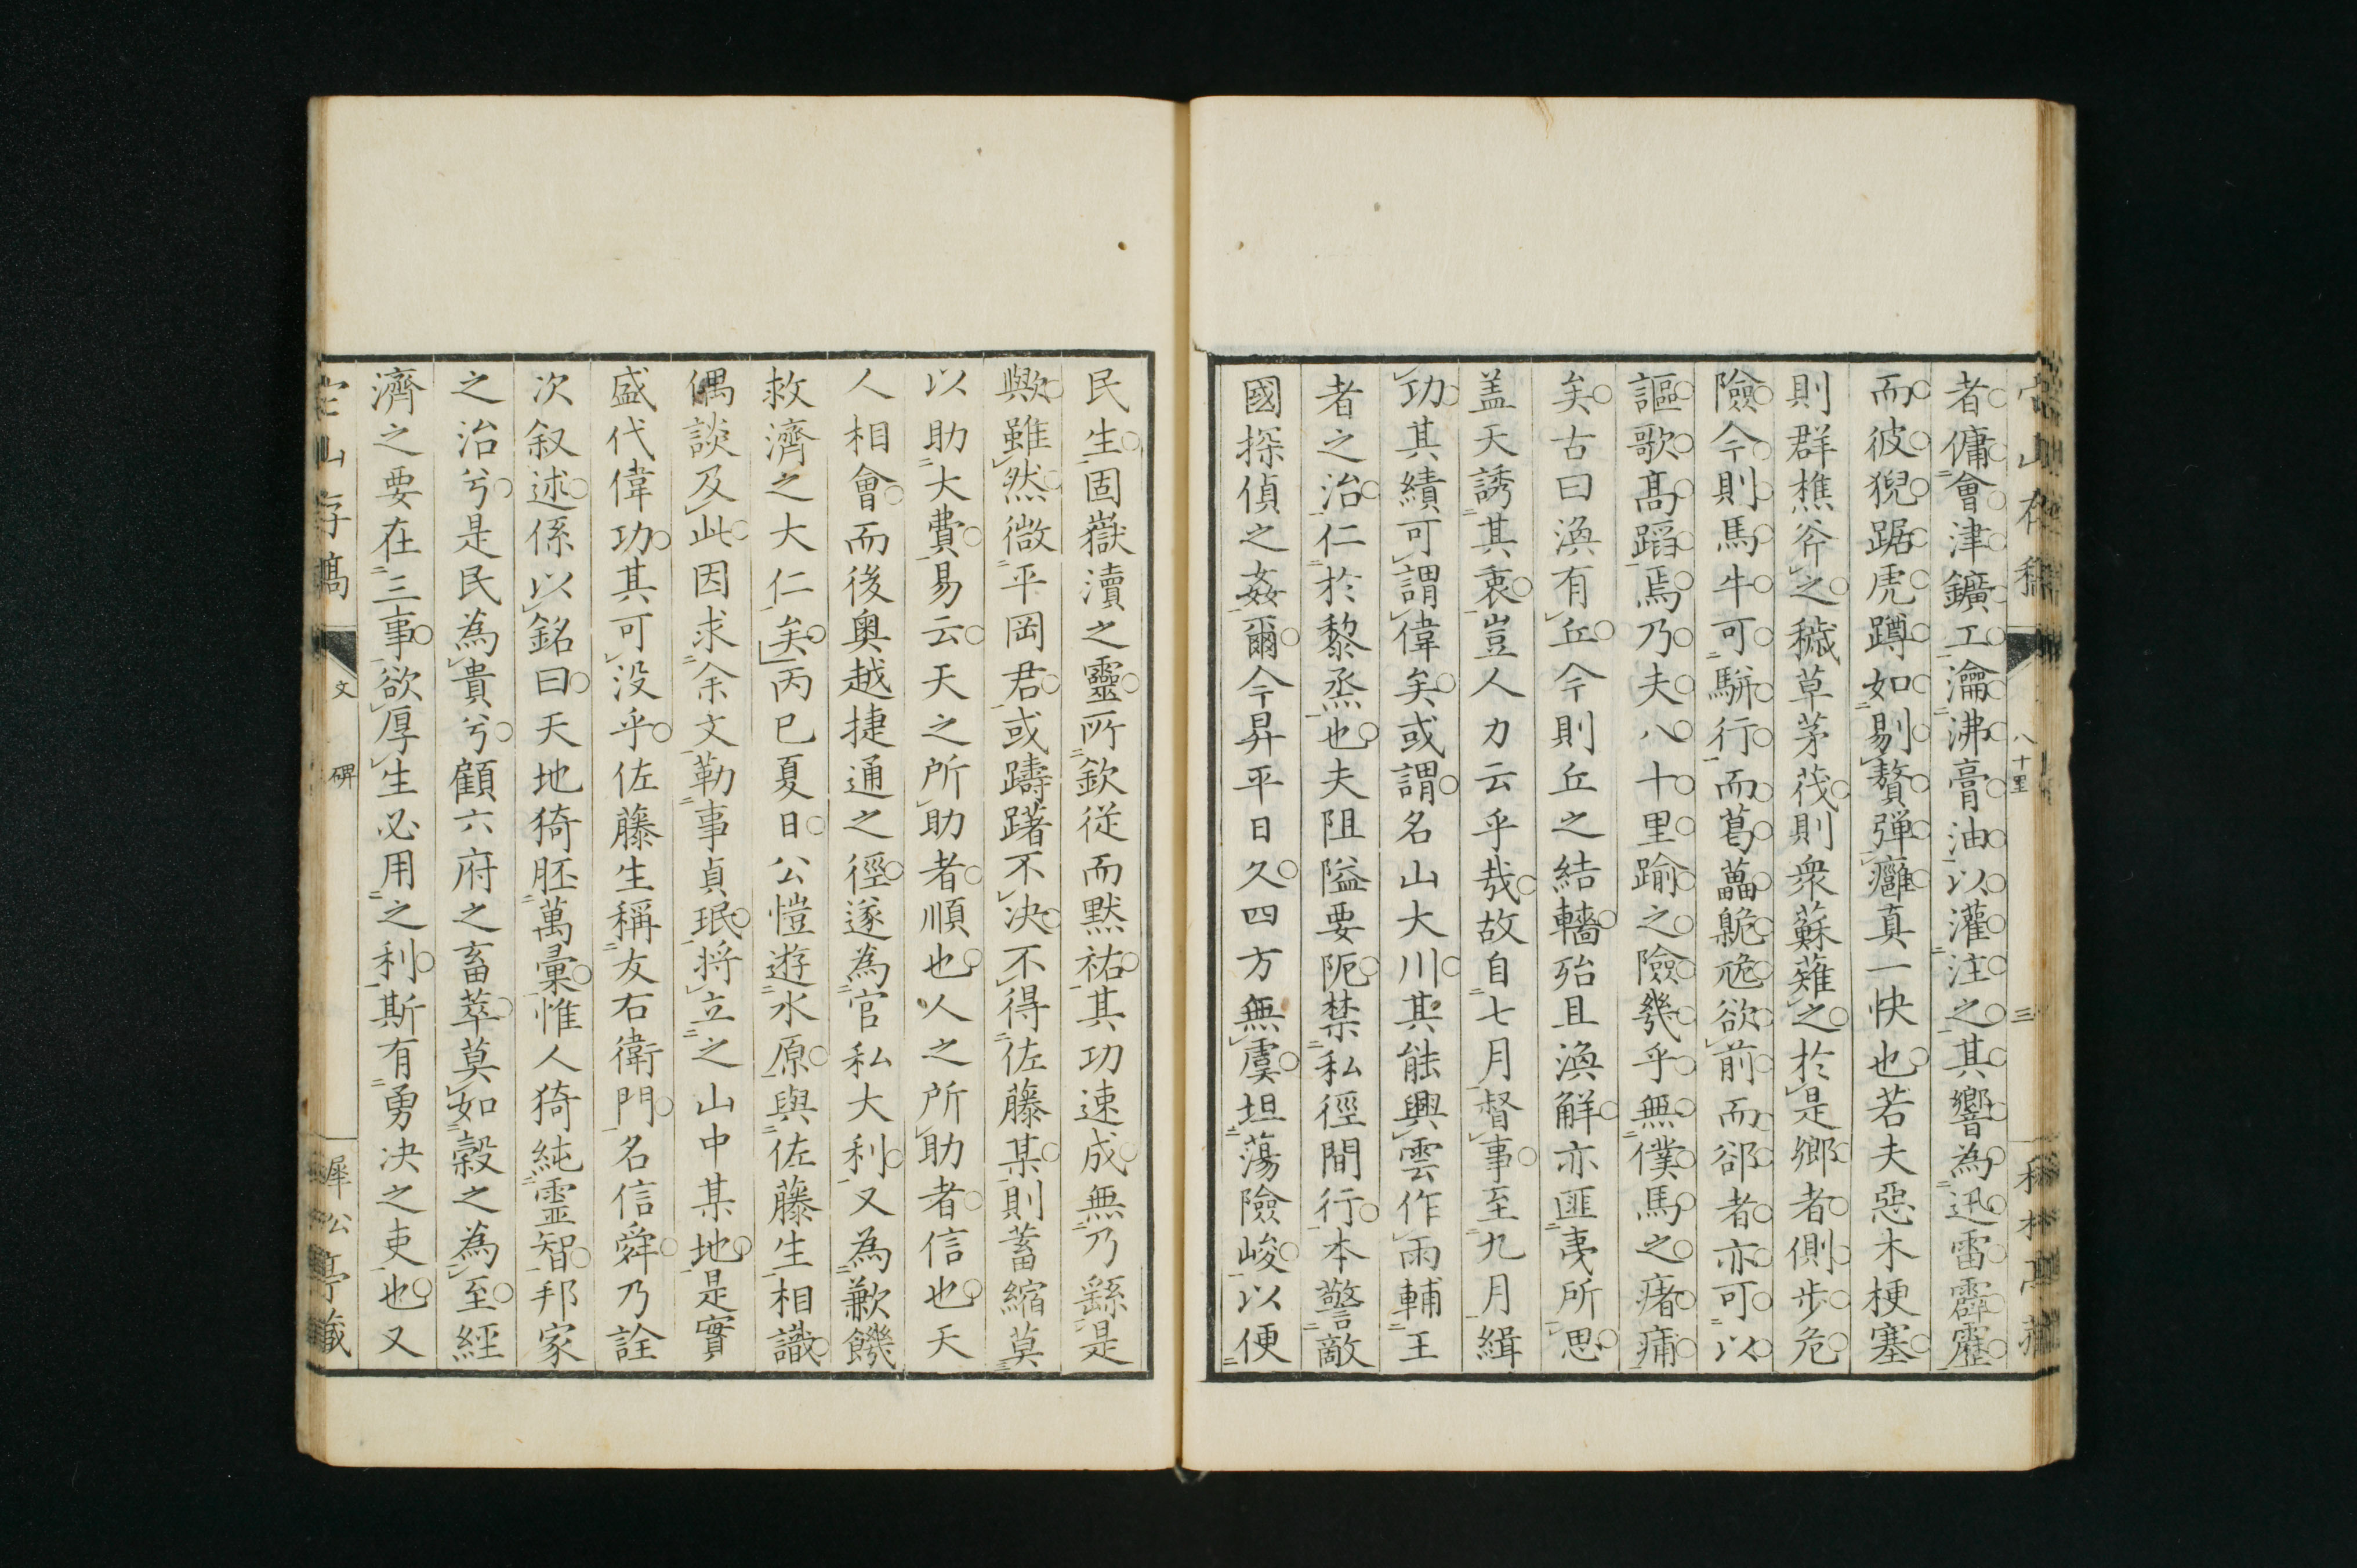 者傭會津鑛工瀹沸膏油以灌注之其響為迅雷霹靂
而彼猊踞虎蹲如剔贅弾癰真一快也若夫惡木梗塞
則群樵斧之穢草茅茷則衆蘇薙之於是鄉者側步危
險今則馬牛可駢行而葛藟臲卼欲前而郤者亦可以
謳歌髙蹈焉乃夫八十里踰之險幾乎無僕馬之瘏痡
矣古曰渙有丘今則丘之結轖殆且渙解亦匪夷所思
盖天誘其衷豈人力云乎哉故自七月督事至九月緝
功其績可謂偉矣或謂名山大川其能興雲作雨輔王
者之治仁於黎烝也夫阻隘要阨禁私徑間行本警敵
國探偵之姦爾今昇平日久四方無虞坦蕩險峻以便
民生固嶽瀆之靈所欽従而黙祐其功速成無乃繇是
歟雖然微平岡君或躊躇不决不得佐藤某則蓄縮莫
以助大費易云天之所助者順也人之所助者信也天
人相會而後奥越捷通之徑遂為官私大利又為歉饑
救濟之大仁矣丙巳夏日公愷遊水原與佐藤生相識
偶談及此因求余文勒事貞珉将立之山中某地是實
盛代偉功其可没乎佐藤生稱友右衛門名信舜乃詮
次叙述係以銘曰天地猗胚萬彙惟人猗純靈智邦家
之治兮是民為貴兮顧六府之畜萃莫如穀之為至經
濟之要在三事欲厚生必用之利斯有勇决之吏也又
文　碑